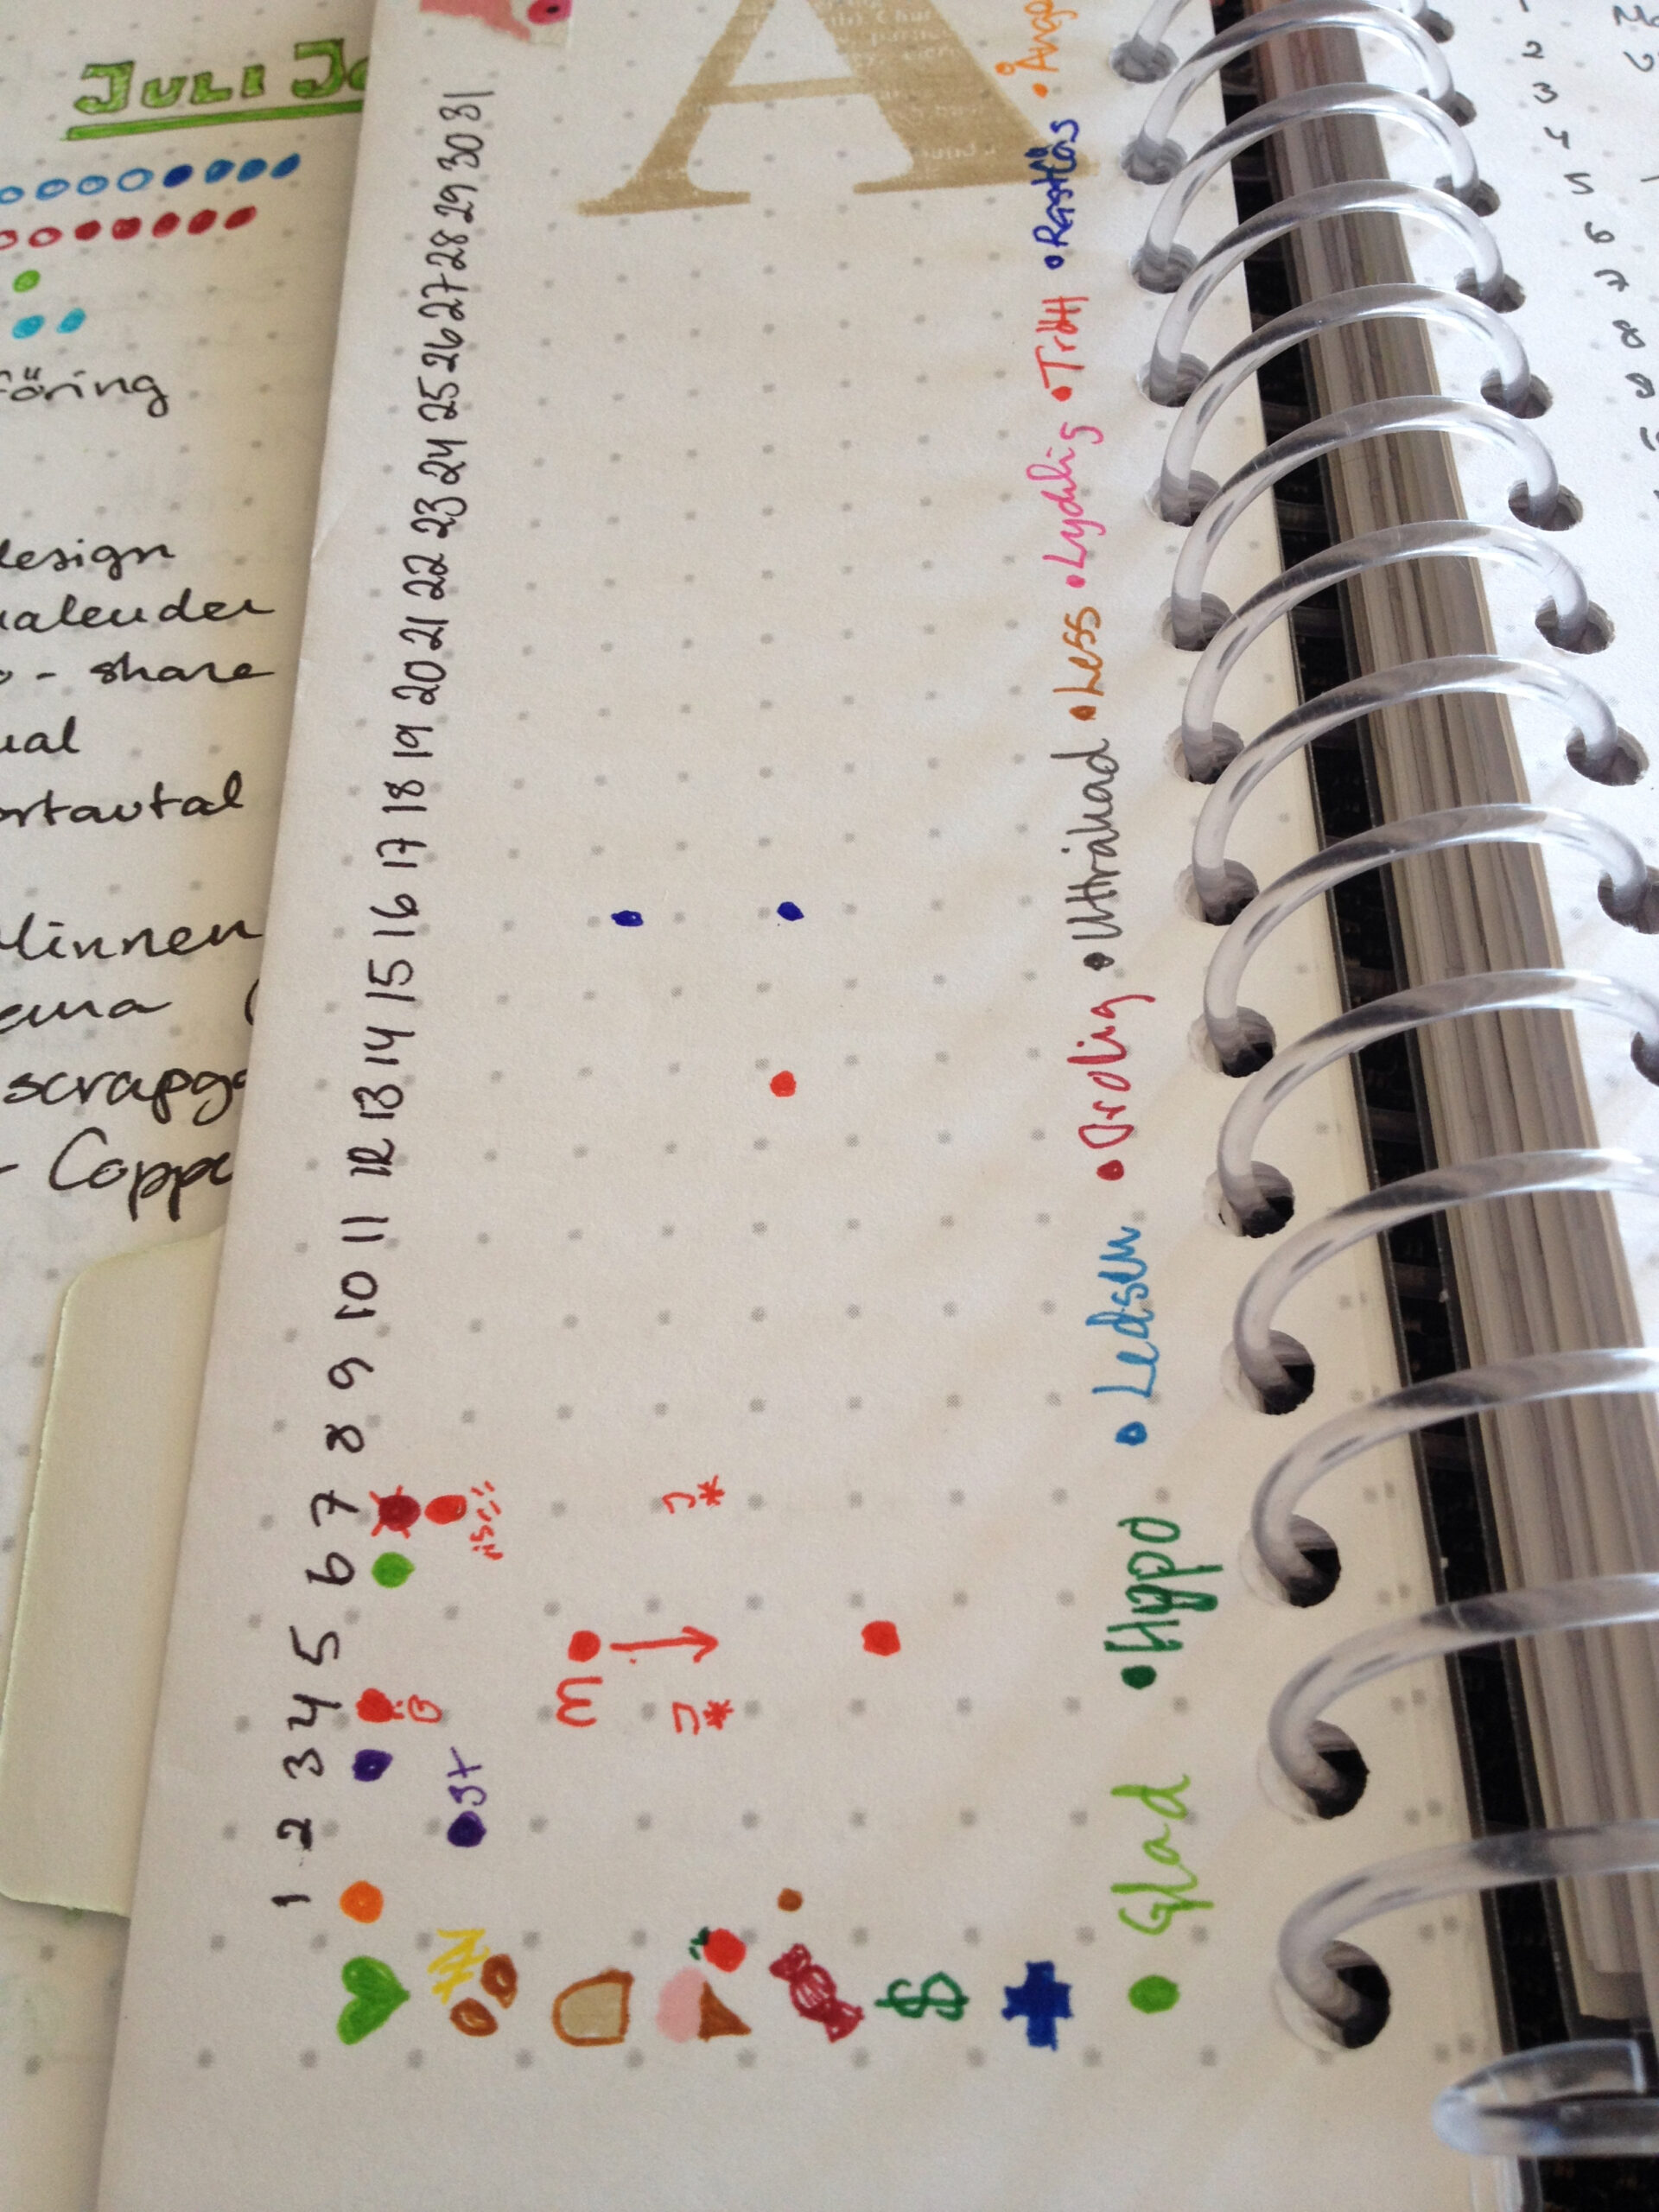 JULI
föring
design
kalender
- share
ual
Minnen
ema
scrapg
- Coppe
1 2 3 4 5 6 7 8 9 10 11 12 13 14 15 16 17 18 19 20 21 22 23 24 25 26 27 28 29 30 31
st
m
J* J*
$
• Glad • Hypo • Ledsen • Orolig • Uttråkad • Less • Lycklig • Trött • Rastlös • Ång
2
3
4
5
6
7
8